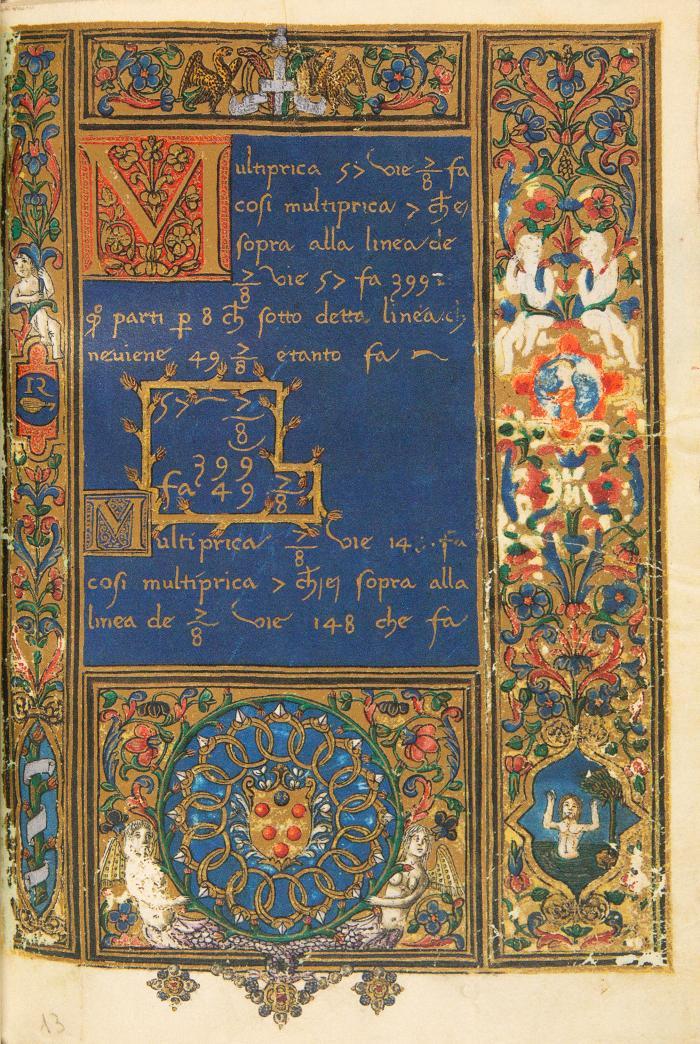 Multiprica 57 vie 7/8 fa
cosi multiprica 7 ch e
sopra alla linea de
7/8 vie 57 fa 399
parti p 8 ch sotto detta linea ch
neviene 49 7/8 etanto fa
57 7/8
399
fa 49 7/8
Multiprica 7/8 vie 14 fa
cosi multiprica 7 ch e sopra alla
linea de 7/8 vie 148 che fa
13